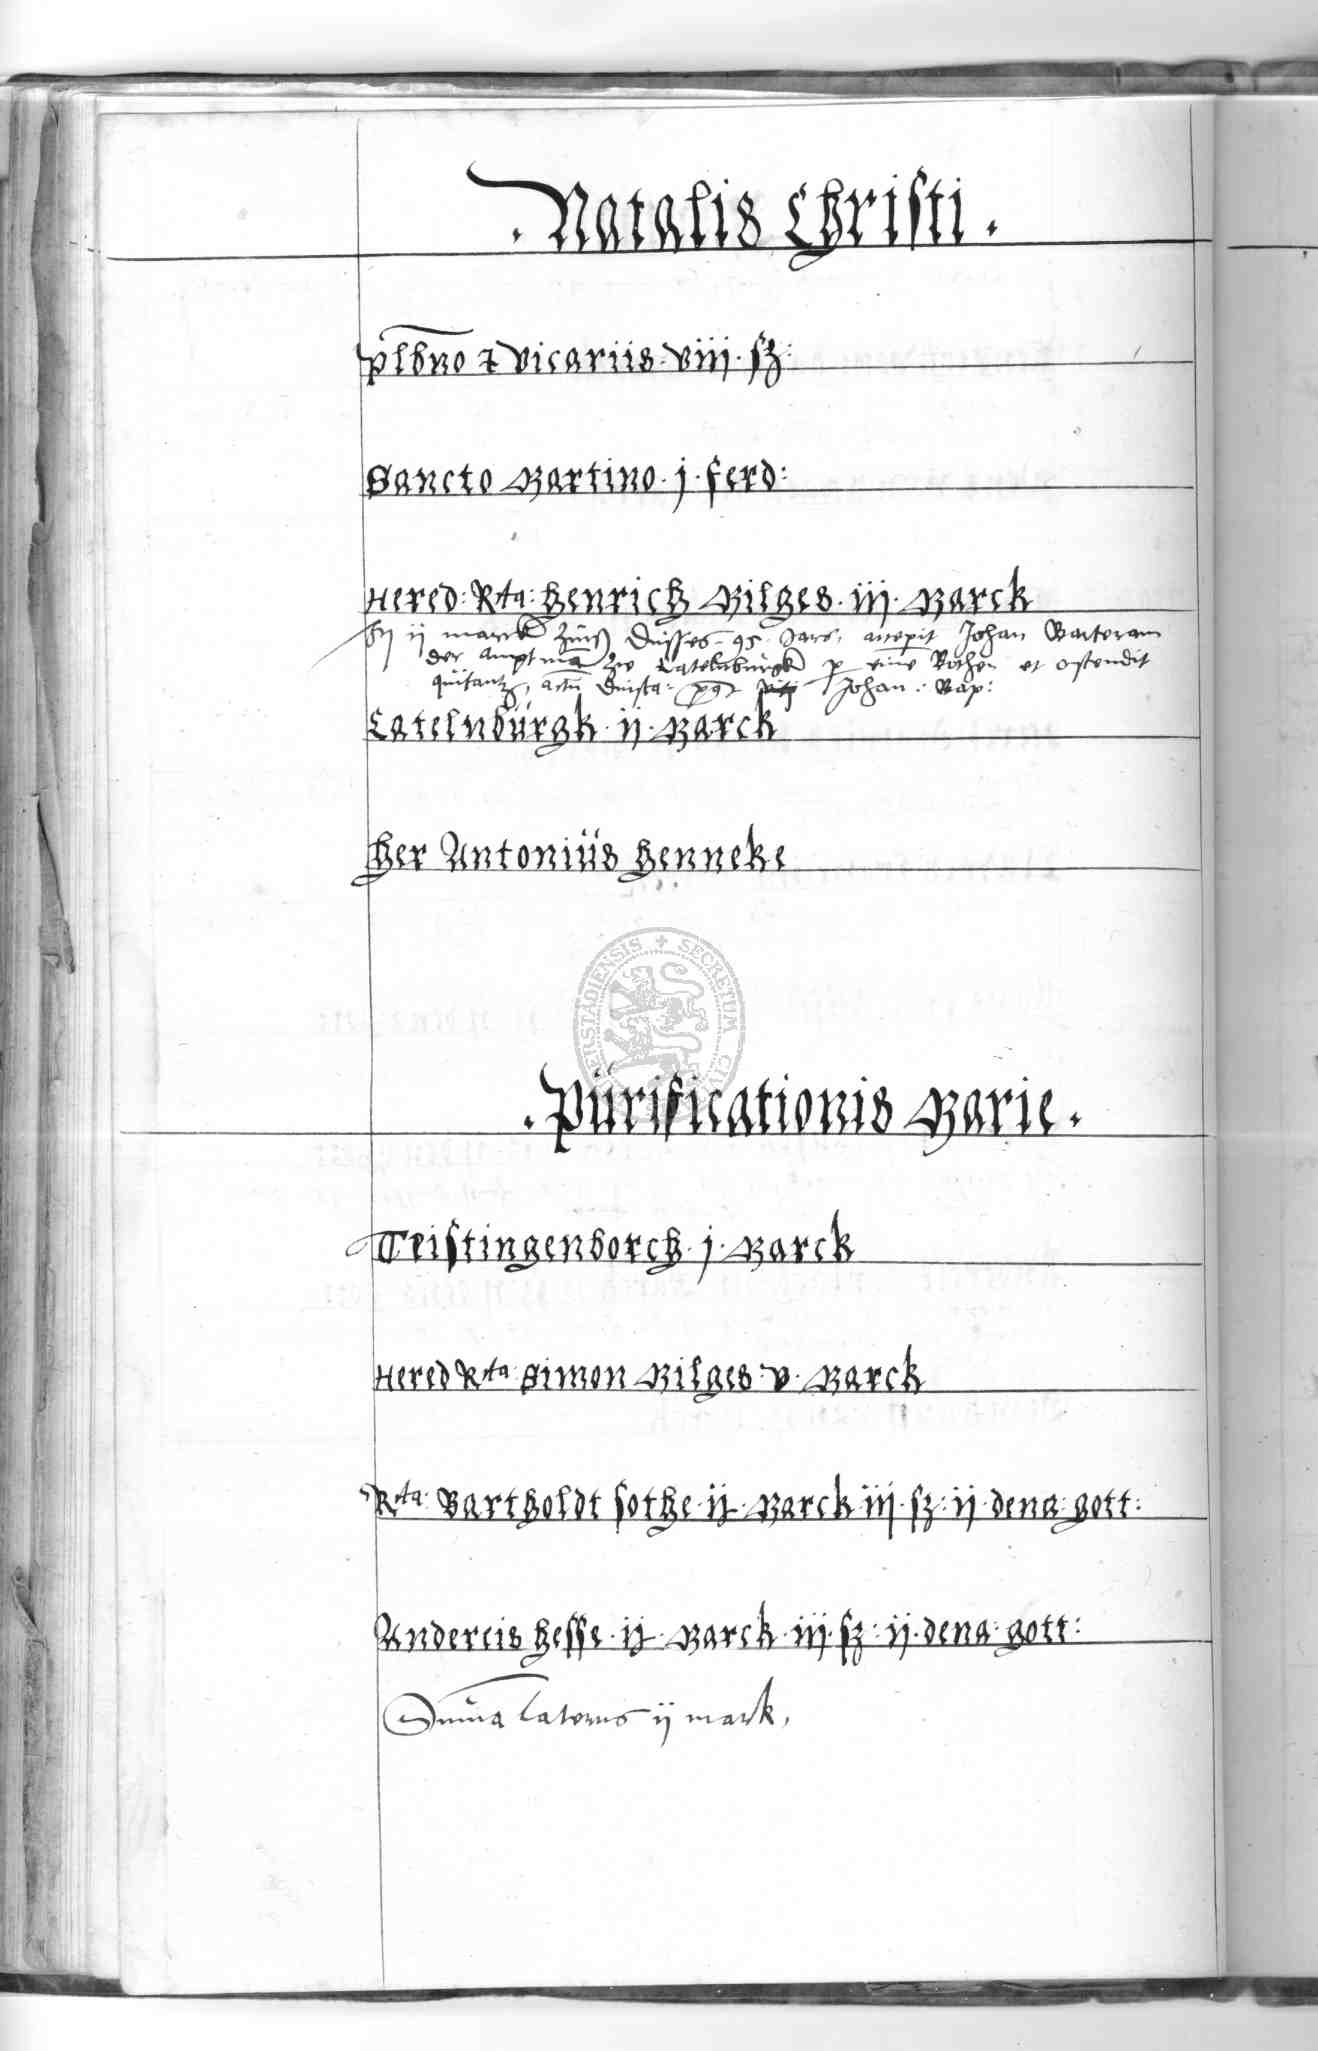 . Natalis Christi .
plbno & vicariis · viii · sz:
Sancto Martino · j · ferd:
Hered: Rta: Henrich Milges · iij · Marck
ij marck Zinß Disses 95 Jars, accepit Johan Barteram
der amptmā zw Catelnburgk p eine Bothen et ostendit
quitantz, actū post Johan: Bap:
Catelnbürgk · ij · Marck
Her Antoniüs Henneke
SECRETUM CIV ERSTADIENSIS
. Pürificationis Marie .
Teistingenborch · j · Marck
Hered Rta Simon Milges · v · Marck
Rta: Bartholdt sothe · ij · Marck iij · sz: ij · dena: gott:
Andereis Hesse · ij · Marck · iij · sz: ij · dena: gott:
Suma Lateris ij mark,